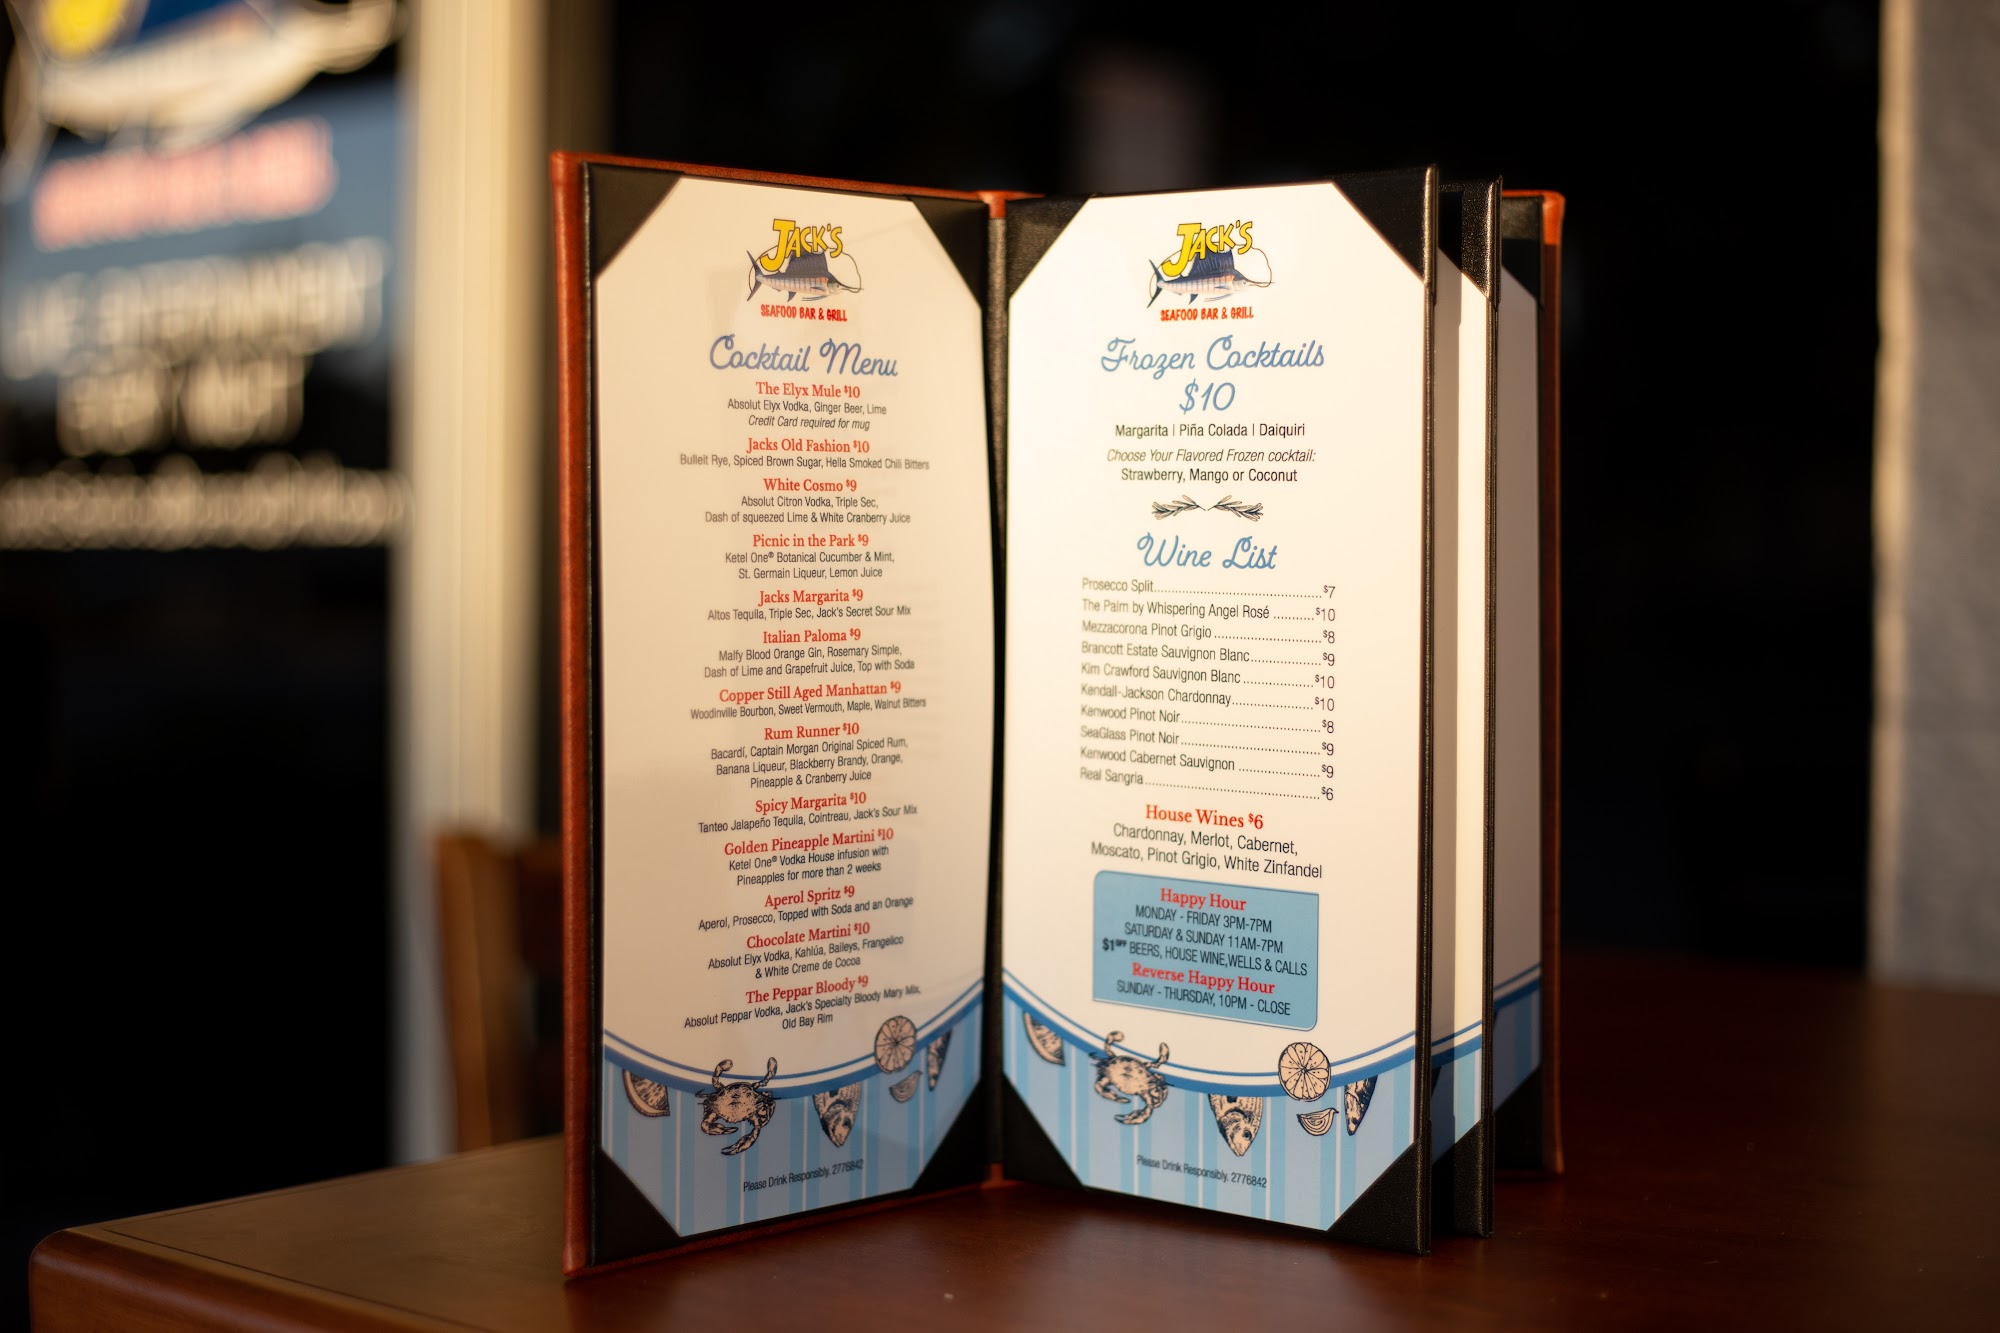 JACK'S
SEAFOOD BAR & GRILL
Cocktail Menu
The Elyx Mule $10
Absolut Elyx Vodka, Ginger Beer, Lime
Credit Card required for mug
Jacks Old Fashion $10
Bulleit Rye, Spiced Brown Sugar, Hella Smoked Chili Bitters
White Cosmo $9
Absolut Citron Vodka, Triple Sec,
Dash of squeezed Lime & White Cranberry Juice
Picnic in the Park $9
Ketel One® Botanical Cucumber & Mint,
St. Germain Liqueur, Lemon Juice
Jacks Margarita $9
Altos Tequila, Triple Sec, Jack's Secret Sour Mix
Italian Paloma $9
Malfy Blood Orange Gin, Rosemary Simple,
Dash of Lime and Grapefruit Juice, Top with Soda
Copper Still Aged Manhattan $9
Woodinville Bourbon, Sweet Vermouth, Maple, Walnut Bitters
Rum Runner $10
Bacardí, Captain Morgan Original Spiced Rum,
Banana Liqueur, Blackberry Brandy, Orange,
Pineapple & Cranberry Juice
Spicy Margarita $10
Tanteo Jalapeño Tequila, Cointreau, Jack's Sour Mix
Golden Pineapple Martini $10
Ketel One® Vodka House infusion with
Pineapples for more than 2 weeks
Aperol Spritz $9
Aperol, Prosecco, Topped with Soda and an Orange
Chocolate Martini $10
Absolut Elyx Vodka, Kahlúa, Baileys, Frangelico
& White Creme de Cocoa
The Peppar Bloody $9
Absolut Peppar Vodka, Jack's Specialty Bloody Mary Mix,
Old Bay Rim
Please Drink Responsibly. 2776842
JACK'S
SEAFOOD BAR & GRILL
Frozen Cocktails
$10
Margarita | Piña Colada | Daiquiri
Choose Your Flavored Frozen cocktail:
Strawberry, Mango or Coconut
Wine List
Prosecco Split $7
The Palm by Whispering Angel Rosé $10
Mezzacorona Pinot Grigio $8
Brancott Estate Sauvignon Blanc $9
Kim Crawford Sauvignon Blanc $10
Kendall-Jackson Chardonnay $10
Kenwood Pinot Noir $8
SeaGlass Pinot Noir $9
Kenwood Cabernet Sauvignon $9
Real Sangria $6
House Wines $6
Chardonnay, Merlot, Cabernet,
Moscato, Pinot Grigio, White Zinfandel
Happy Hour
MONDAY - FRIDAY 3PM-7PM
SATURDAY & SUNDAY 11AM-7PM
$1 OFF BEERS, HOUSE WINE,WELLS & CALLS
Reverse Happy Hour
SUNDAY - THURSDAY, 10PM - CLOSE
Please Drink Responsibly. 2776842